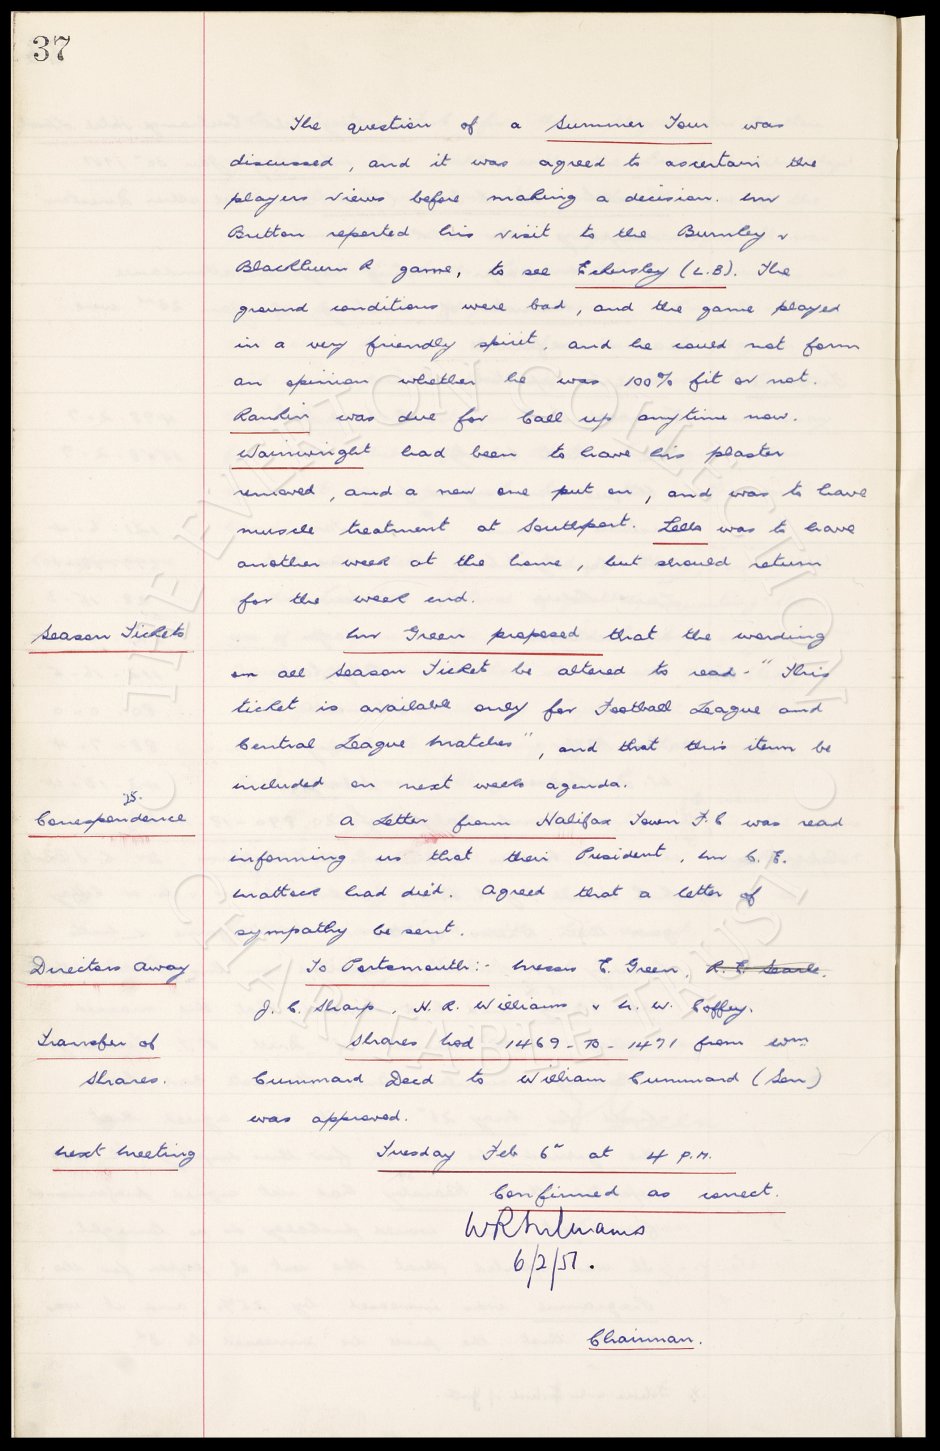 37
The question of a Summer Tour was
discussed, and it was agreed to ascertain the
players views before making a decision. Mr
Britton reported his visit to the Burnley v
Blackburn R game, to see Eckersley (L.B). The
ground conditions were bad, and the game played
in a very friendly spirit, and he could not form
an opinion whether he was 100% fit or not.
Rankin was due for Call up anytime now.
Wainwright had been to have his plaster
removed, and a new one put on, and was to have
muscle treatment at Southport. Lello was to have
another week at the home, but should return
for the week end.
Season Tickets Mr Green proposed that the wording
on all Season Ticket be altered to read - "This
ticket is available only for Football League and
Central League Matches", and that this item be
included on next weeks agenda.
Correspondence A Letter from Halifax Town F.C was read
informing us that their President, Mr C. E.
had died. Agreed that a letter of
sympathy be sent.
Directors Away To Portsmouth:- Messrs E. Green, R. E. Searle,
J. C. Sharp, N. R. Williams & W. Coffey.
Transfer of Shares Nod 1469 - To - 1471 from Wm
Shares. Cummard Decd to William Cummard (Son)
was approved.
Next Meeting Tuesday Feb 6th at 4 P.M.
Confirmed as correct.
6/2/51.
Chairman.
THE EVERTON COLLECTION
CHARITABLE TRUST